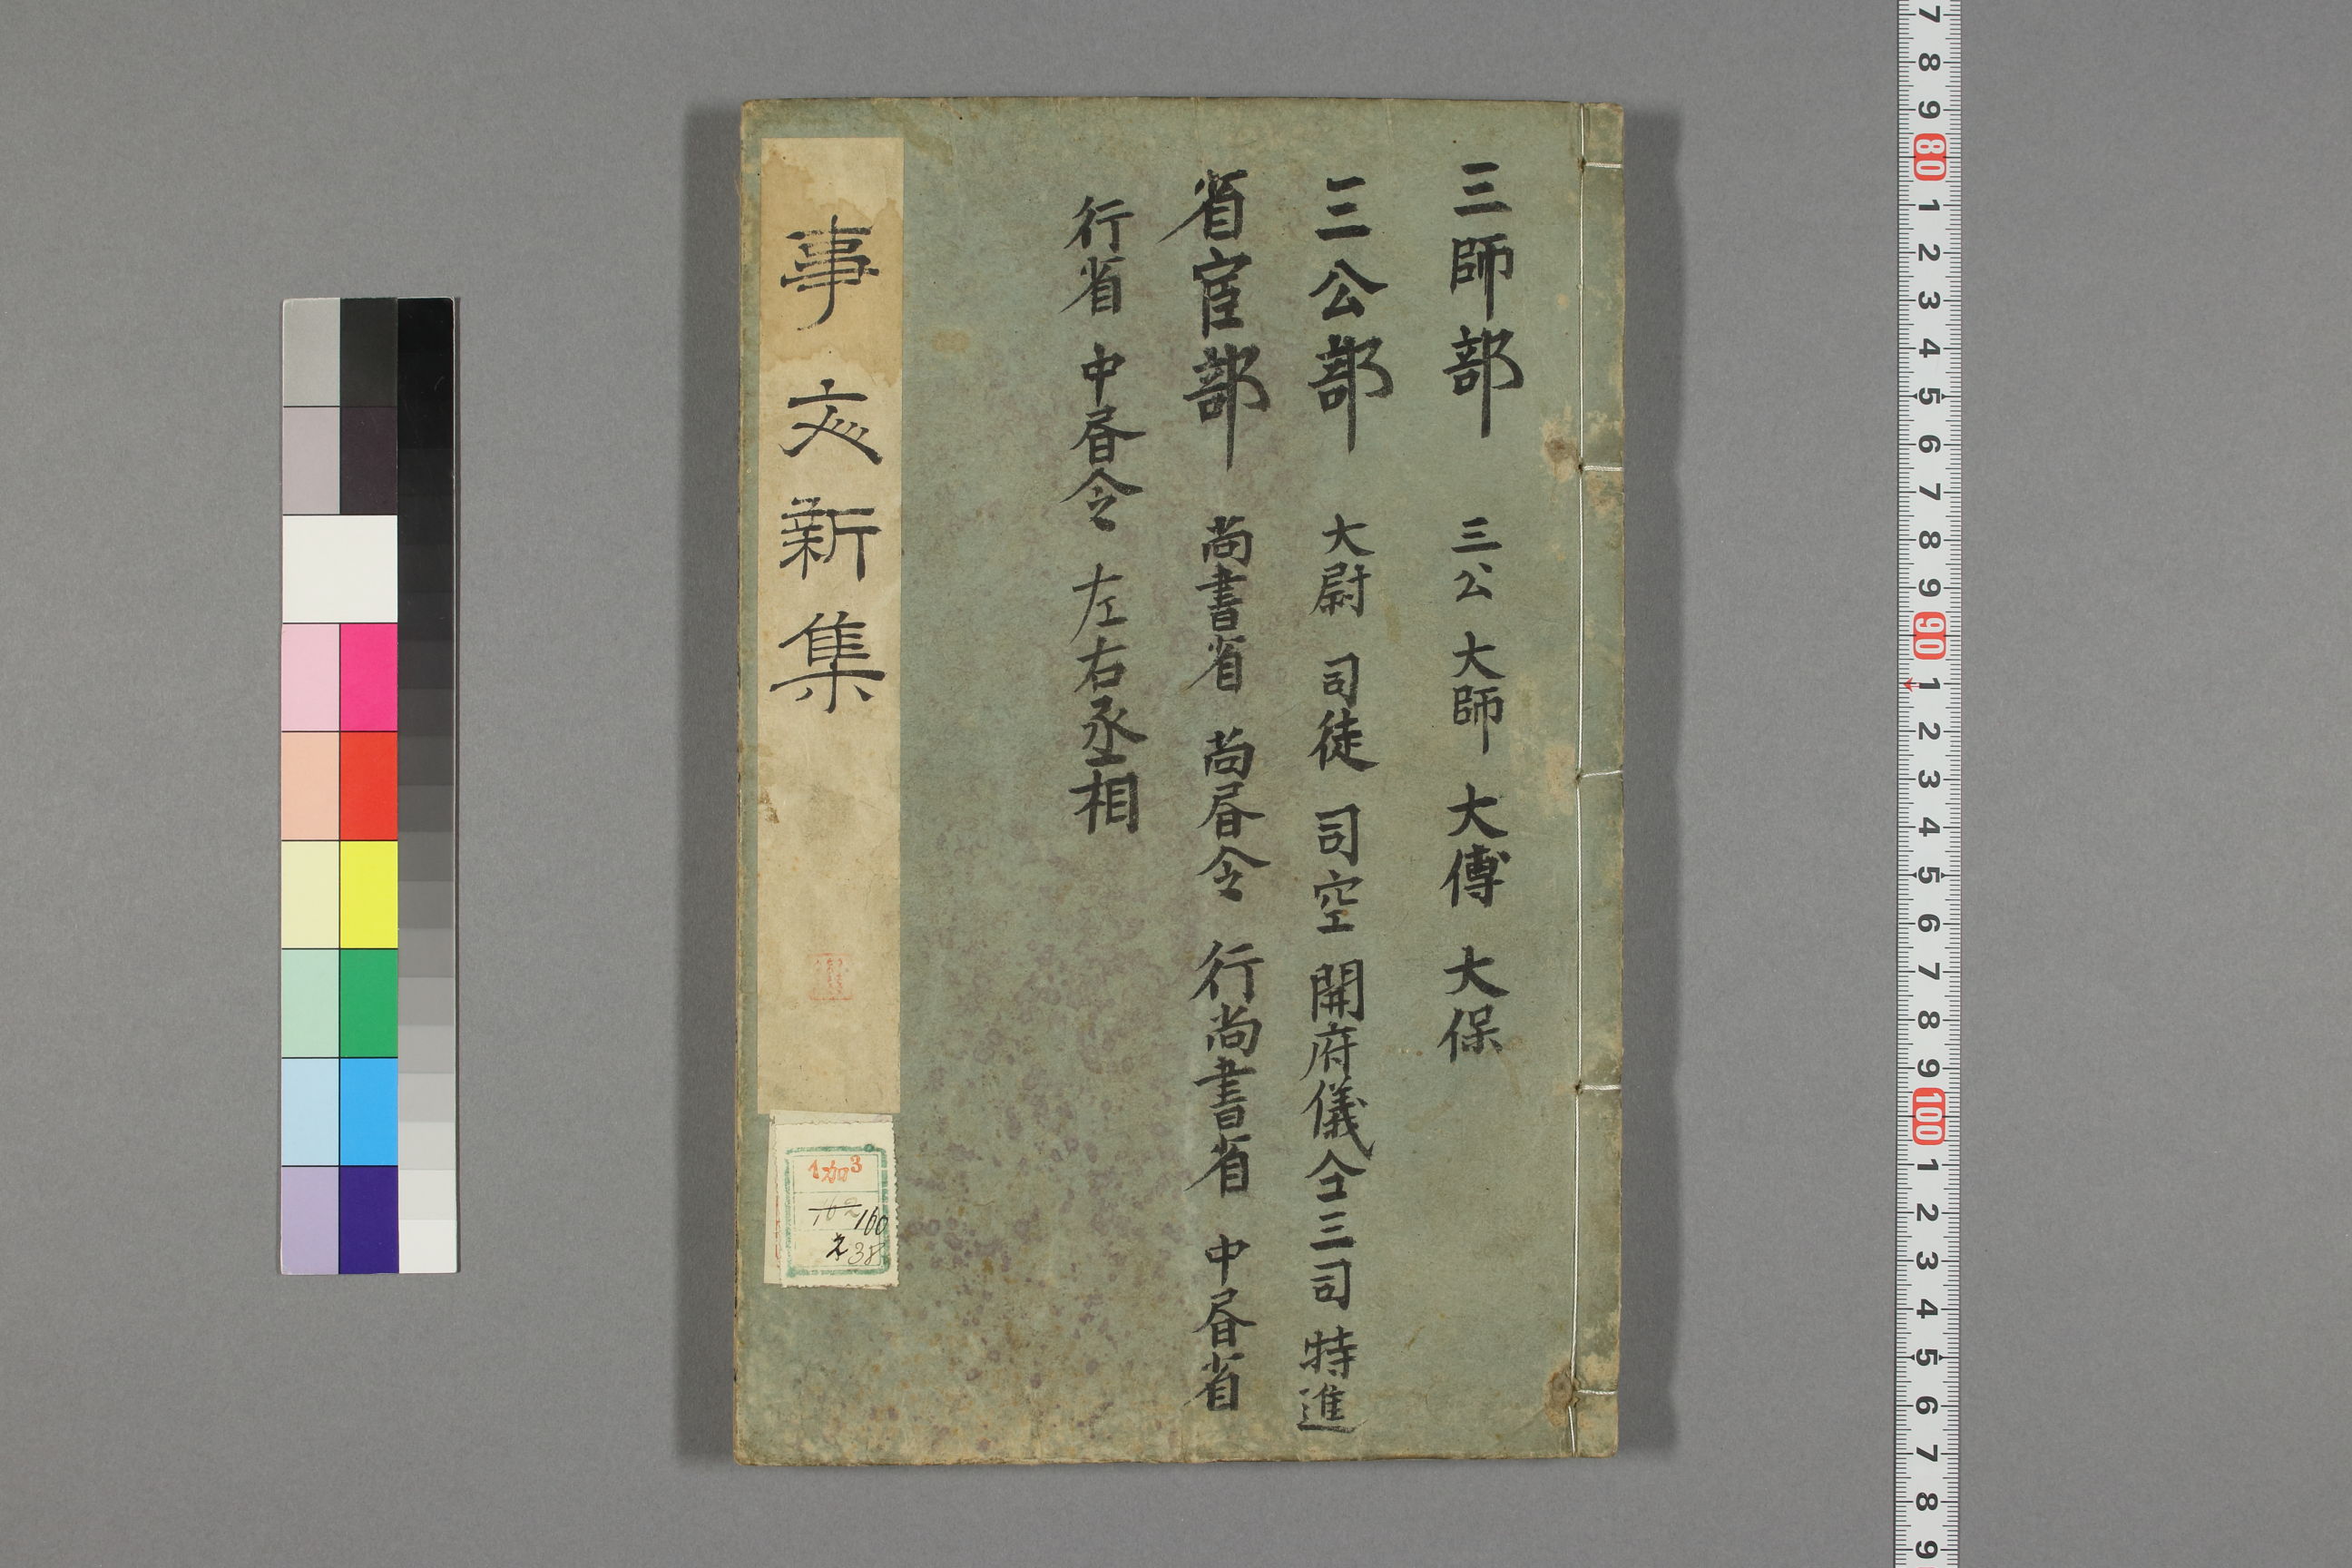 三師部 三公 大師 大傅 大保
三公部 大尉 司徒 司空 開府儀仝三司 特進
省官部 尚書省 尚昼令 行尚書省 中昼省
行省 中昼令 左右丞相
事文新集
1加3
162
160
38
7 8 9 80 1 2 3 4 5 6 7 8 9 90 1 2 3 4 5 6 7 8 9 100 1 2 3 4 5 6 7 8 9